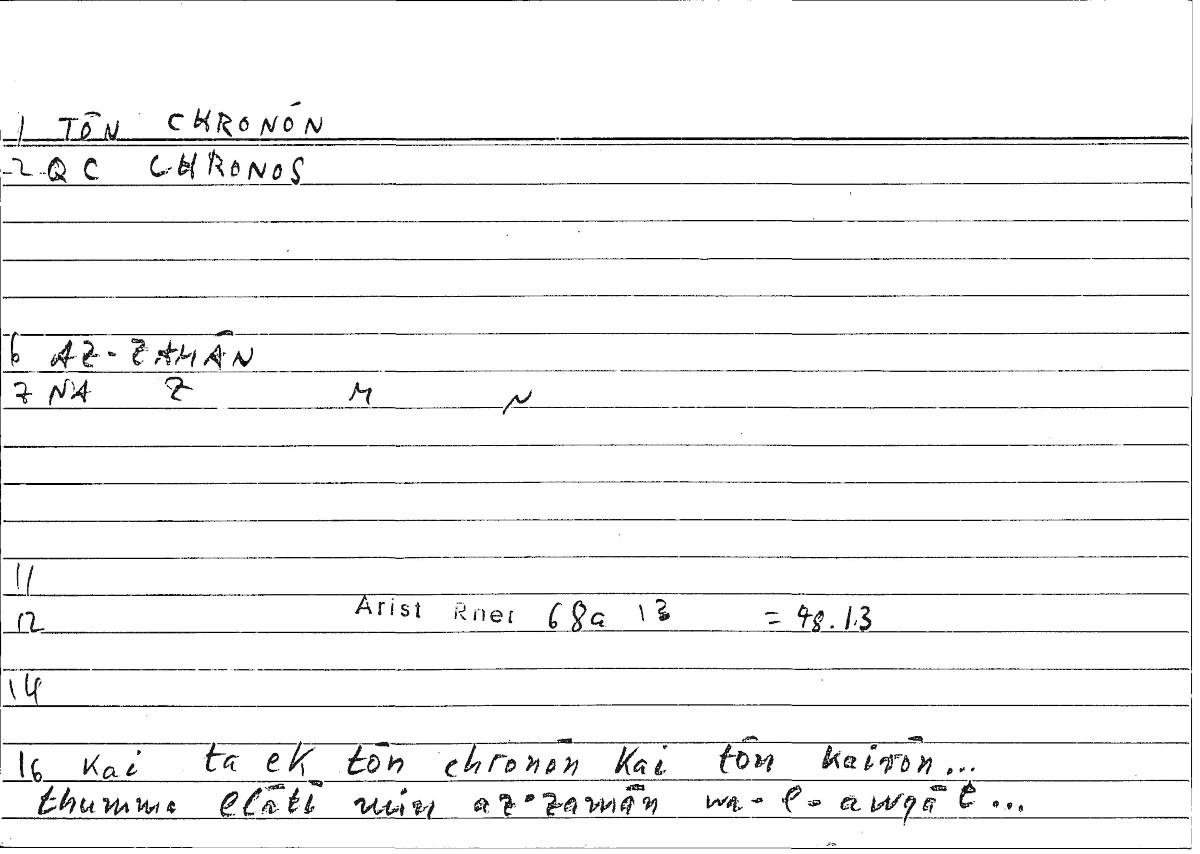 1 TŌN CHRONŌN
2 QC CHRONOS
6 AZ-ZAMĀN
7 NA Z M N
11
12 Arist Rhet 68a 13 = 48.13
14
16 Kai ta ek tōn chronōn kai tōn kairōn...
thumma llātī min az-zamān wa-l-awqāt...